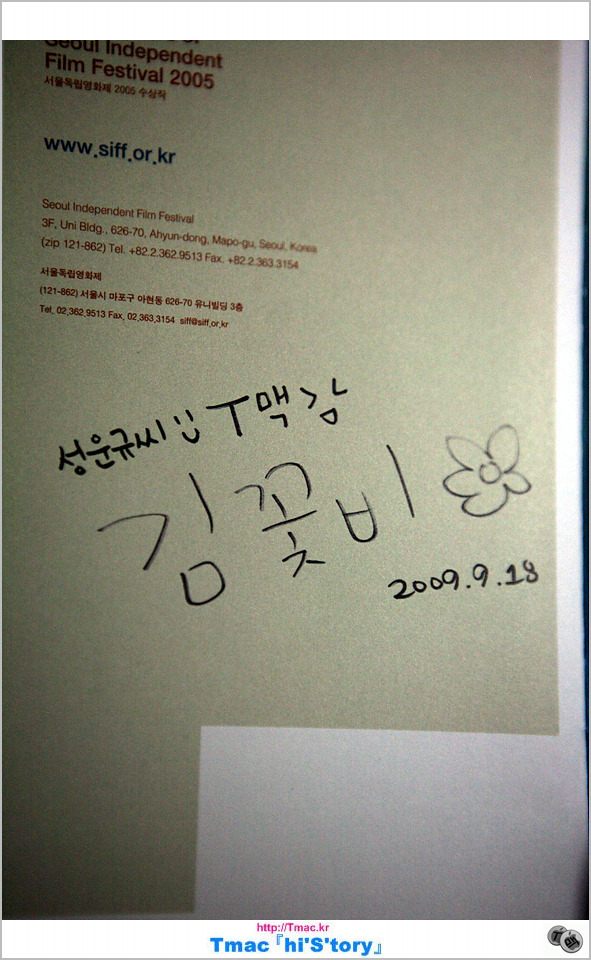 Seoul Independent
Film Festival 2005
서울독립영화제 2005 수상작
www.siff.or.kr
Seoul Independent Film Festival
3F, Uni Bldg., 626-70, Ahyun-dong, Mapo-gu, Seoul, Korea
(zip 121-862) Tel. +82.2.362.9513 Fax. +82.2.363.3154
서울독립영화제
(121-862) 서울시 마포구 아현동 626-70 유니빌딩 3층
Tel. 02.362.9513 Fax. 02.363.3154 siff@siff.or.kr
성운규씨 :) T맥 감
김꽃비
2009.9.18
http://Tmac.kr
Tmac『hi'S'tory』